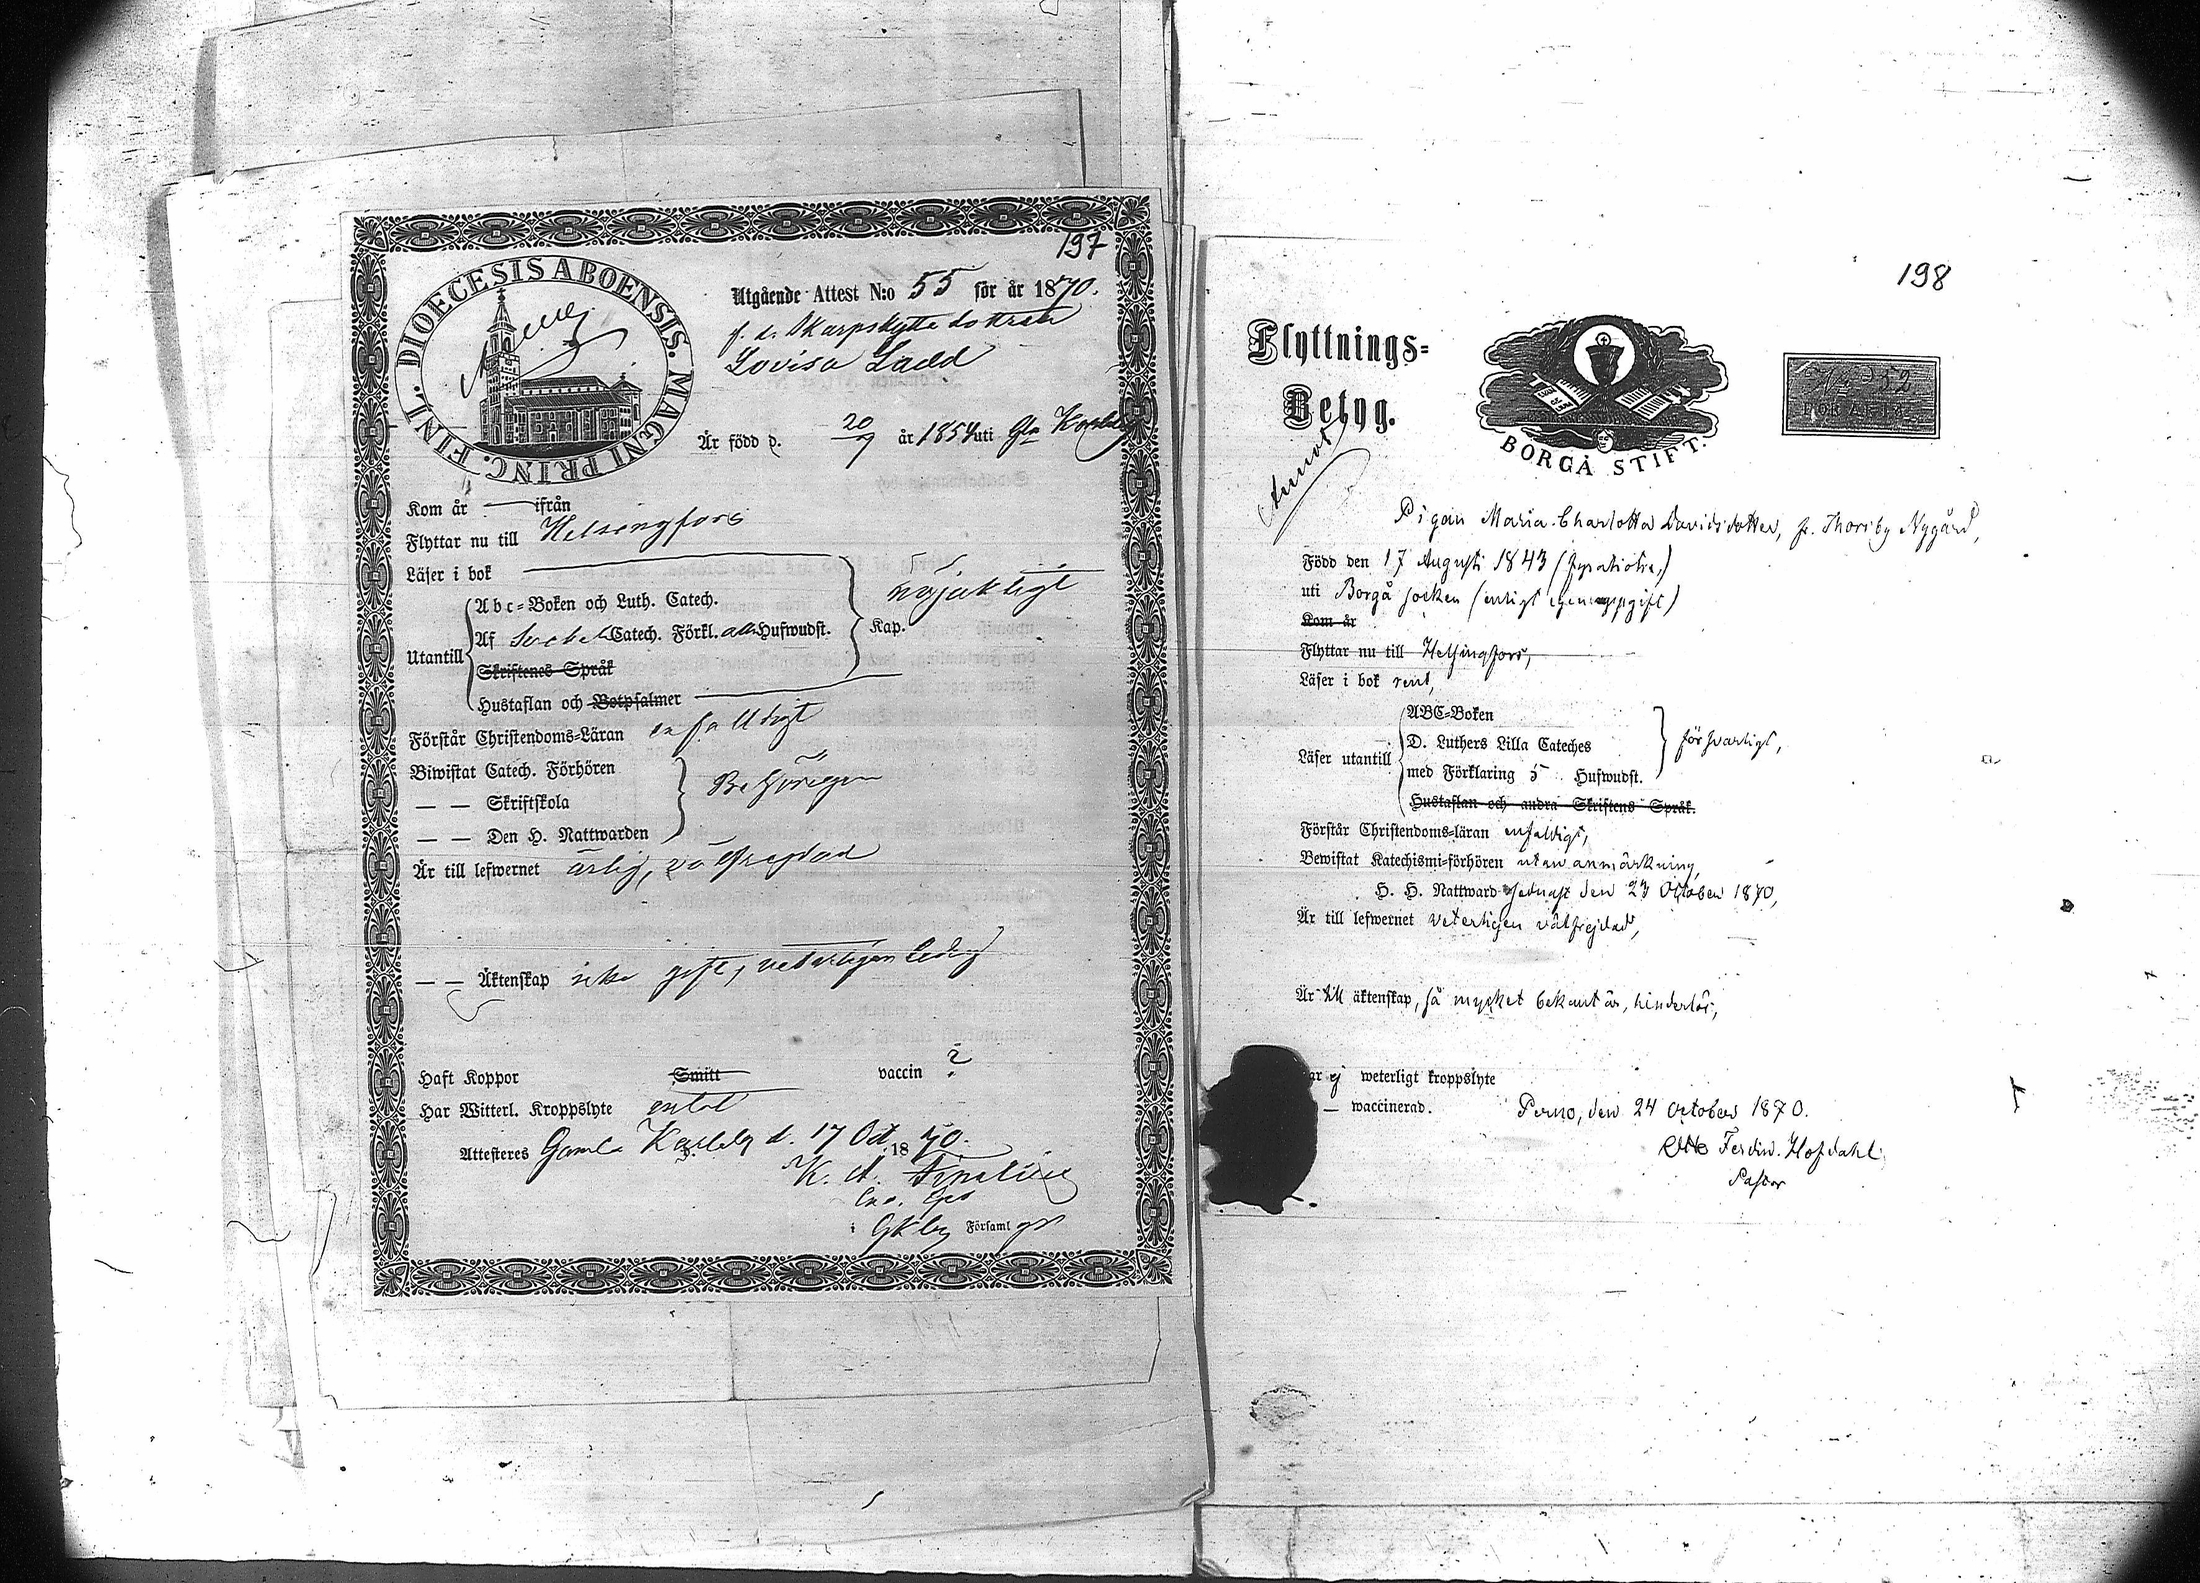 197
DIOECESIS ABOENSIS. MAGNI PRINC. FINL.
Utgående Attest N:o 55 för år 1870.
f. d. Skarpskytte dottren
Lovisa Ladd
Är född d. 20/7 år 1854 uti Gla Karleby
Kom år — ifrån
Flyttar nu till Helsingfors
Läser i bok
Utantill
Abc-Boken och Luth. Catech.
Af Catech. Förkl. alla Hufwudst.
Kap. nöjaktigt
Skriftenes Språk
Hustaflan och Botpsalmer
Förstår Christendoms-Läran enfalldigt
Biwistat Catech. Förhören
— — Skriftskola
Behörigen
— — Den H. Nattwarden
Är till lefwernet ärlig, välfrejdad
— — Äktenskap icke gift, veterligen ledig
Haft Koppor Smitt vaccin ?
Har Witterl. Kroppslyte intet
Attesteres Gamla Karleby d. 17 Oct. 1870.
K. A.
i Gkby Församl
198
Flyttnings-
Betyg.
BORGÅ STIFT.
52
Pigan Maria Charlotta Davidsdotter, fr. Thorsby Nygård,
Född den 17 Augusti 1843
uti Borgå socken (enligt egen uppgift)
Kom år
Flyttar nu till Helsingfors,
Läser i bok rent,
Läser utantill
ABC-Boken
D. Luthers Lilla Cateches
med Förklaring 5 Hufwudst.
försvarligt,
Hustaflan och andra Skriftens Språk.
Förstår Christendoms-läran enfaldigt,
Bewistat Katechismi-förhören utan anmärkning,
H. H. Nattward sednast den 23 October 1870,
Är till lefwernet veterligen välfrejdad,
Är till äktenskap, så mycket bekant är, hinderlös,
ar ej weterligt kroppslyte
— waccinerad.
Perno, den 24 October 1870.
Otto Ferdin. Hofdahl
Pastor